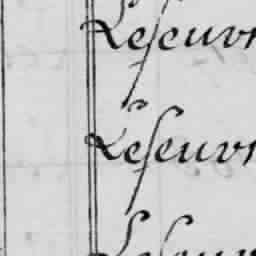 Lefeuvr
Lefeuvr
Lefeuvr